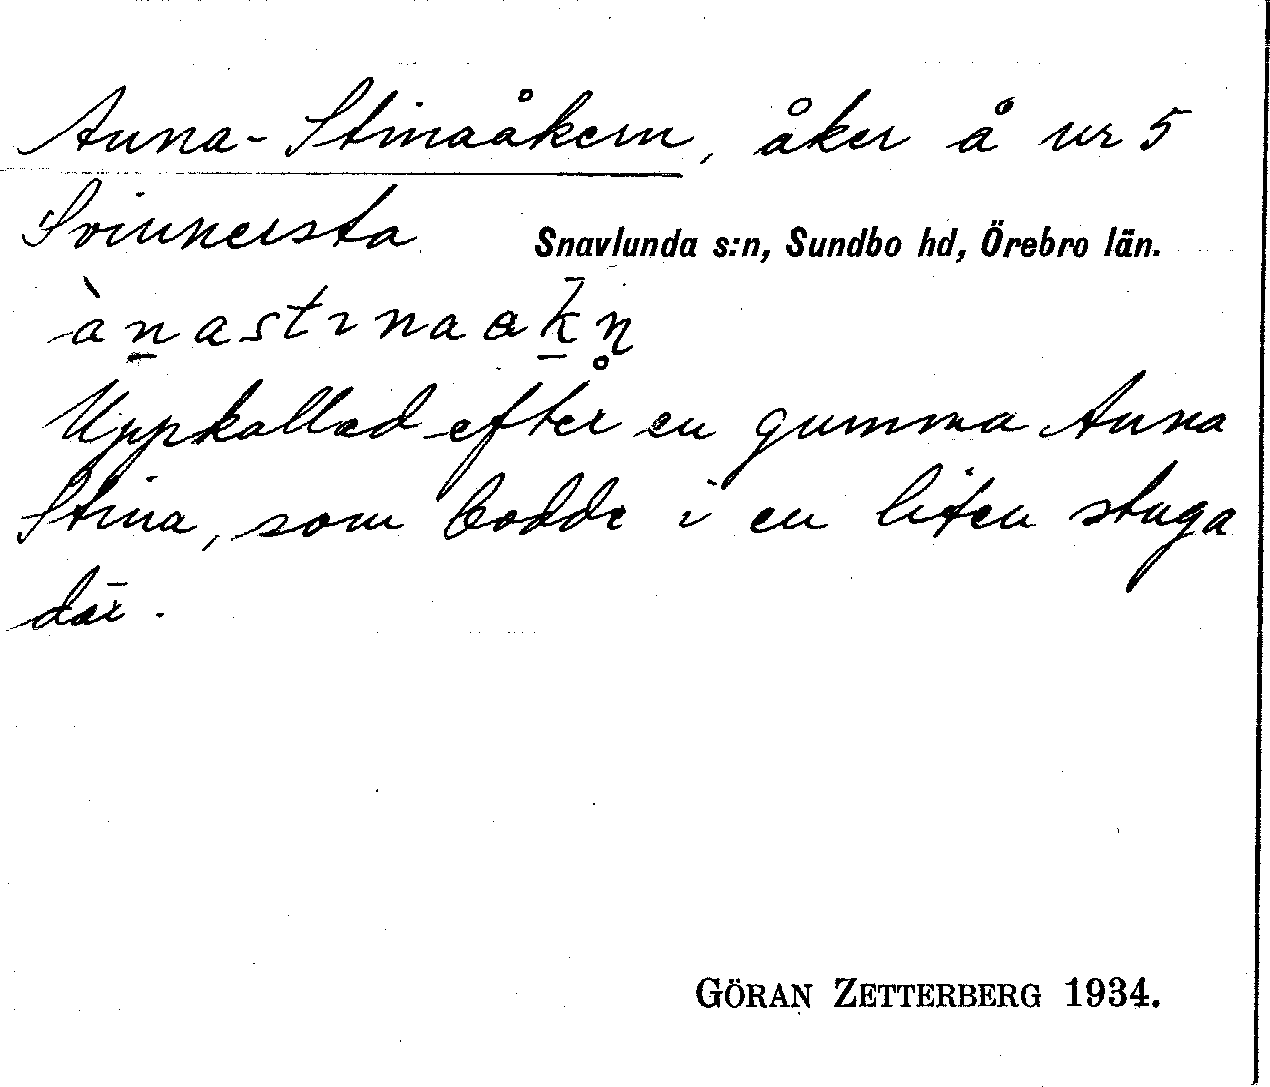 Anna-Stinaåkern, åker å nr 5
Svinnersta Snavlunda s:n, Sundbo hd, Örebro län.
Uppkallad efter en gumma Anna
Stina, som bodde i en liten stuga
där.
GÖRAN ZETTERBERG 1934.